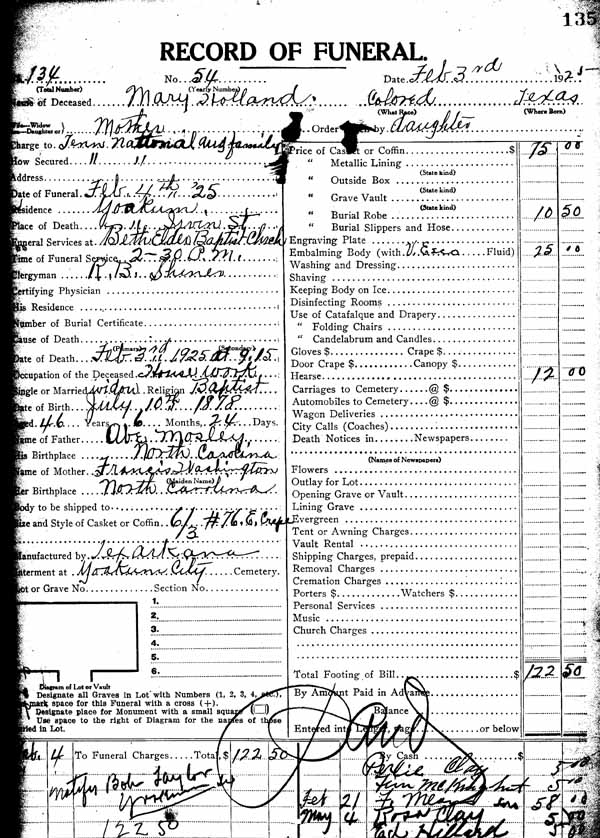 135
RECORD OF FUNERAL.
134 No. 54 Date Feb 3rd 1925
(Total Number) (Yearly Number)
Name of Deceased Mary Holland. Colored Texas
(What Race) (Where Born)
Mother Order by daughter
Charge to Tenn. National and family
How Secured " "
Address
Date of Funeral Feb. 4th '25
Residence Yoakum.
Place of Death Irvin St
Funeral Services at Beth Eldes Baptist Church
Time of Funeral Service 2-30 P.M.
Clergyman R. B. Shines
Certifying Physician
His Residence
Number of Burial Certificate
Cause of Death
(Primary) (Secondary)
Date of Death Feb 3rd 1925 at 9.15
Occupation of the Deceased House work
Single or Married widow Religion Baptist
Date of Birth July 10th 1878
Aged 46 Years 6 Months 24 Days.
Name of Father Abe Mosley
His Birthplace North Carolina
Name of Mother Francis Washington
(Maiden Name)
Her Birthplace North Carolina
Body to be shipped to
Size and Style of Casket or Coffin 6/3 #76. E. Crepe
Manufactured by Texarkana
Interment at Yoakum City Cemetery.
Lot or Grave No. Section No.
1.
2.
3.
4.
5.
6.
Diagram of Lot or Vault
Designate all Graves in Lot with Numbers (1, 2, 3, 4, etc.),
mark space for this Funeral with a cross (+).
Designate place for Monument with a small square
Use space to the right of Diagram for the names of those
buried in Lot.
Price of Casket or Coffin $ 75 00
" Metallic Lining
(State kind)
" Outside Box
(State kind)
" Grave Vault
(State kind)
" Burial Robe 10 50
" Burial Slippers and Hose
Engraving Plate
Embalming Body (with Fluid) 25 00
Washing and Dressing
Shaving
Keeping Body on Ice
Disinfecting Rooms
Use of Catafalque and Drapery
" Folding Chairs
" Candelabrum and Candles
Gloves $ Crape $
Door Crape $ Canopy $
Hearse 12 00
Carriages to Cemetery @ $
Automobiles to Cemetery @ $
Wagon Deliveries
City Calls (Coaches)
Death Notices in Newspapers
(Names of Newspapers)
Flowers
Outlay for Lot
Opening Grave or Vault
Lining Grave
Evergreen
Tent or Awning Charges
Vault Rental
Shipping Charges, prepaid
Removal Charges
Cremation Charges
Porters $ Watchers $
Personal Services
Music
Church Charges
Total Footing of Bill $ 122 50
By Amount Paid in Advance
Balance
Entered into Ledger, page or below
Paid
Feb. 4 To Funeral Charges Total, $ 122 50
Bob Taylor
122 50
By Cash
Clay 5 00
5 00
Feb 21 Ins 58 00
May 4 Rosa Clay 5 00
5 00